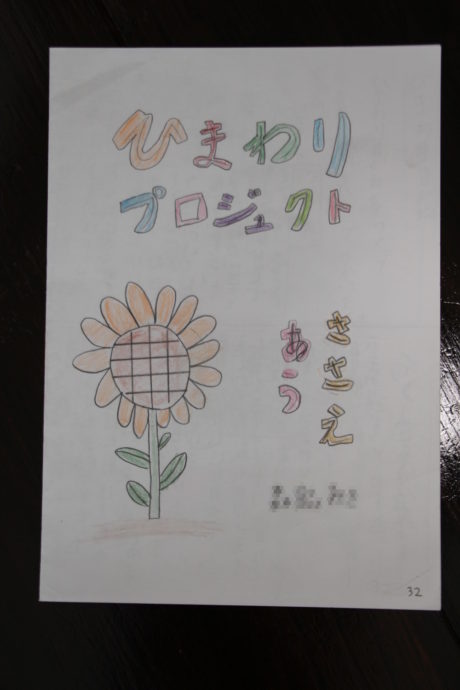 ひまわり
プロジェクト
ささえ
あう
32